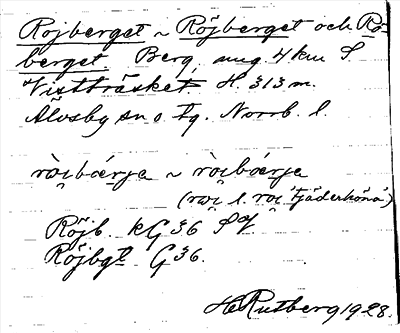 Rojberget ~ Röjberget och Rö-
berget. Berg ung. 4 km S.
Vistträsket. H. 313 m.
Älvsby sn o. tg. Norrb. l.
(l. 'tjäderhöna')
Röjb. kG 36
Röjbgt G 36.
H Rutberg 1928.